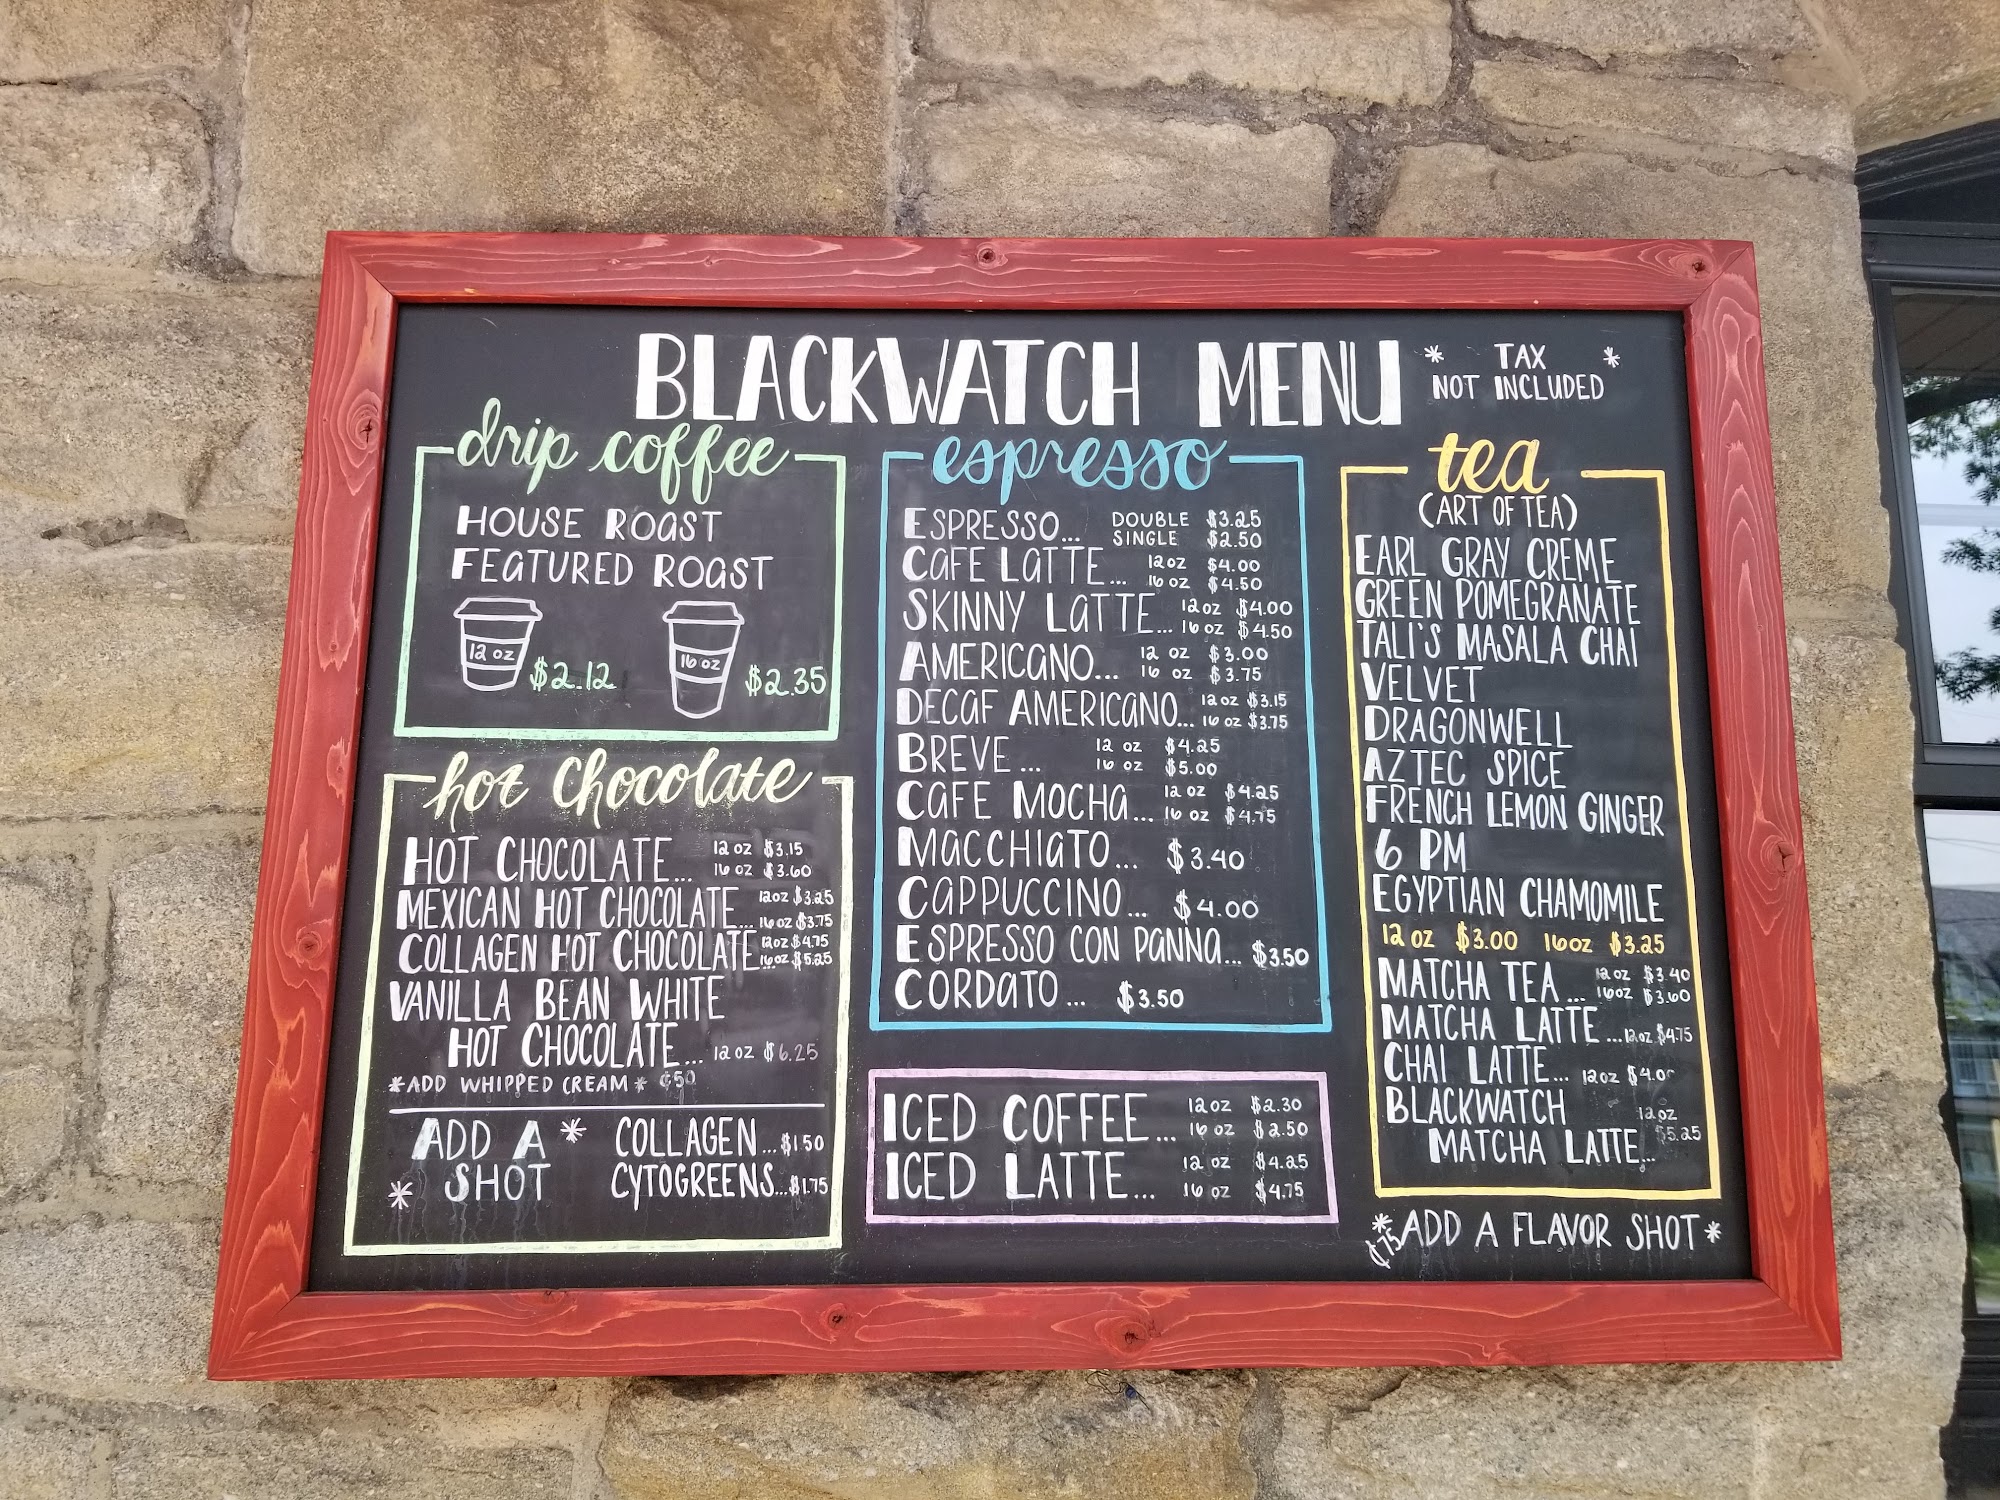 BLACKWATCH MENU
* TAX *
NOT INCLUDED
drip coffee
HOUSE ROAST
FEATURED ROAST
12 oz $2.12
16 oz $2.35
hot chocolate
HOT CHOCOLATE... 12 oz $3.15
16 oz $3.60
MEXICAN HOT CHOCOLATE... 12oz $3.25
16oz $3.75
COLLAGEN HOT CHOCOLATE... 12oz $4.75
16oz $5.25
VANILLA BEAN WHITE
HOT CHOCOLATE... 12 oz $6.25
*ADD WHIPPED CREAM* ¢50
ADD A * COLLAGEN...$1.50
* SHOT CYTOGREENS...$1.75
espresso
ESPRESSO... DOUBLE $3.25
SINGLE $2.50
CAFE LATTE... 12oz $4.00
16 oz $4.50
SKINNY LATTE... 12oz $4.00
16 oz $4.50
AMERICANO... 12 oz $3.00
16 oz $3.75
DECAF AMERICANO... 12oz $3.15
16 oz $3.75
BREVE... 12 oz $4.25
16 oz $5.00
CAFE MOCHA... 12 oz $4.25
16 oz $4.75
MACCHIATO... $3.40
CAPPUCCINO... $4.00
ESPRESSO CON PANNA... $3.50
CORDATO... $3.50
ICED COFFEE... 12oz $2.30
16 oz $2.50
ICED LATTE... 12 oz $4.25
16 oz $4.75
tea
(ART OF TEA)
EARL GRAY CREME
GREEN POMEGRANATE
TALI'S MASALA CHAI
VELVET
DRAGONWELL
AZTEC SPICE
FRENCH LEMON GINGER
6 PM
EGYPTIAN CHAMOMILE
12 oz $3.00 16oz $3.25
MATCHA TEA... 12oz $3.40
16oz $3.60
MATCHA LATTE...12oz $4.75
CHAI LATTE... 12oz $4.00
BLACKWATCH 12oz
MATCHA LATTE... $5.25
*ADD A FLAVOR SHOT*
¢75